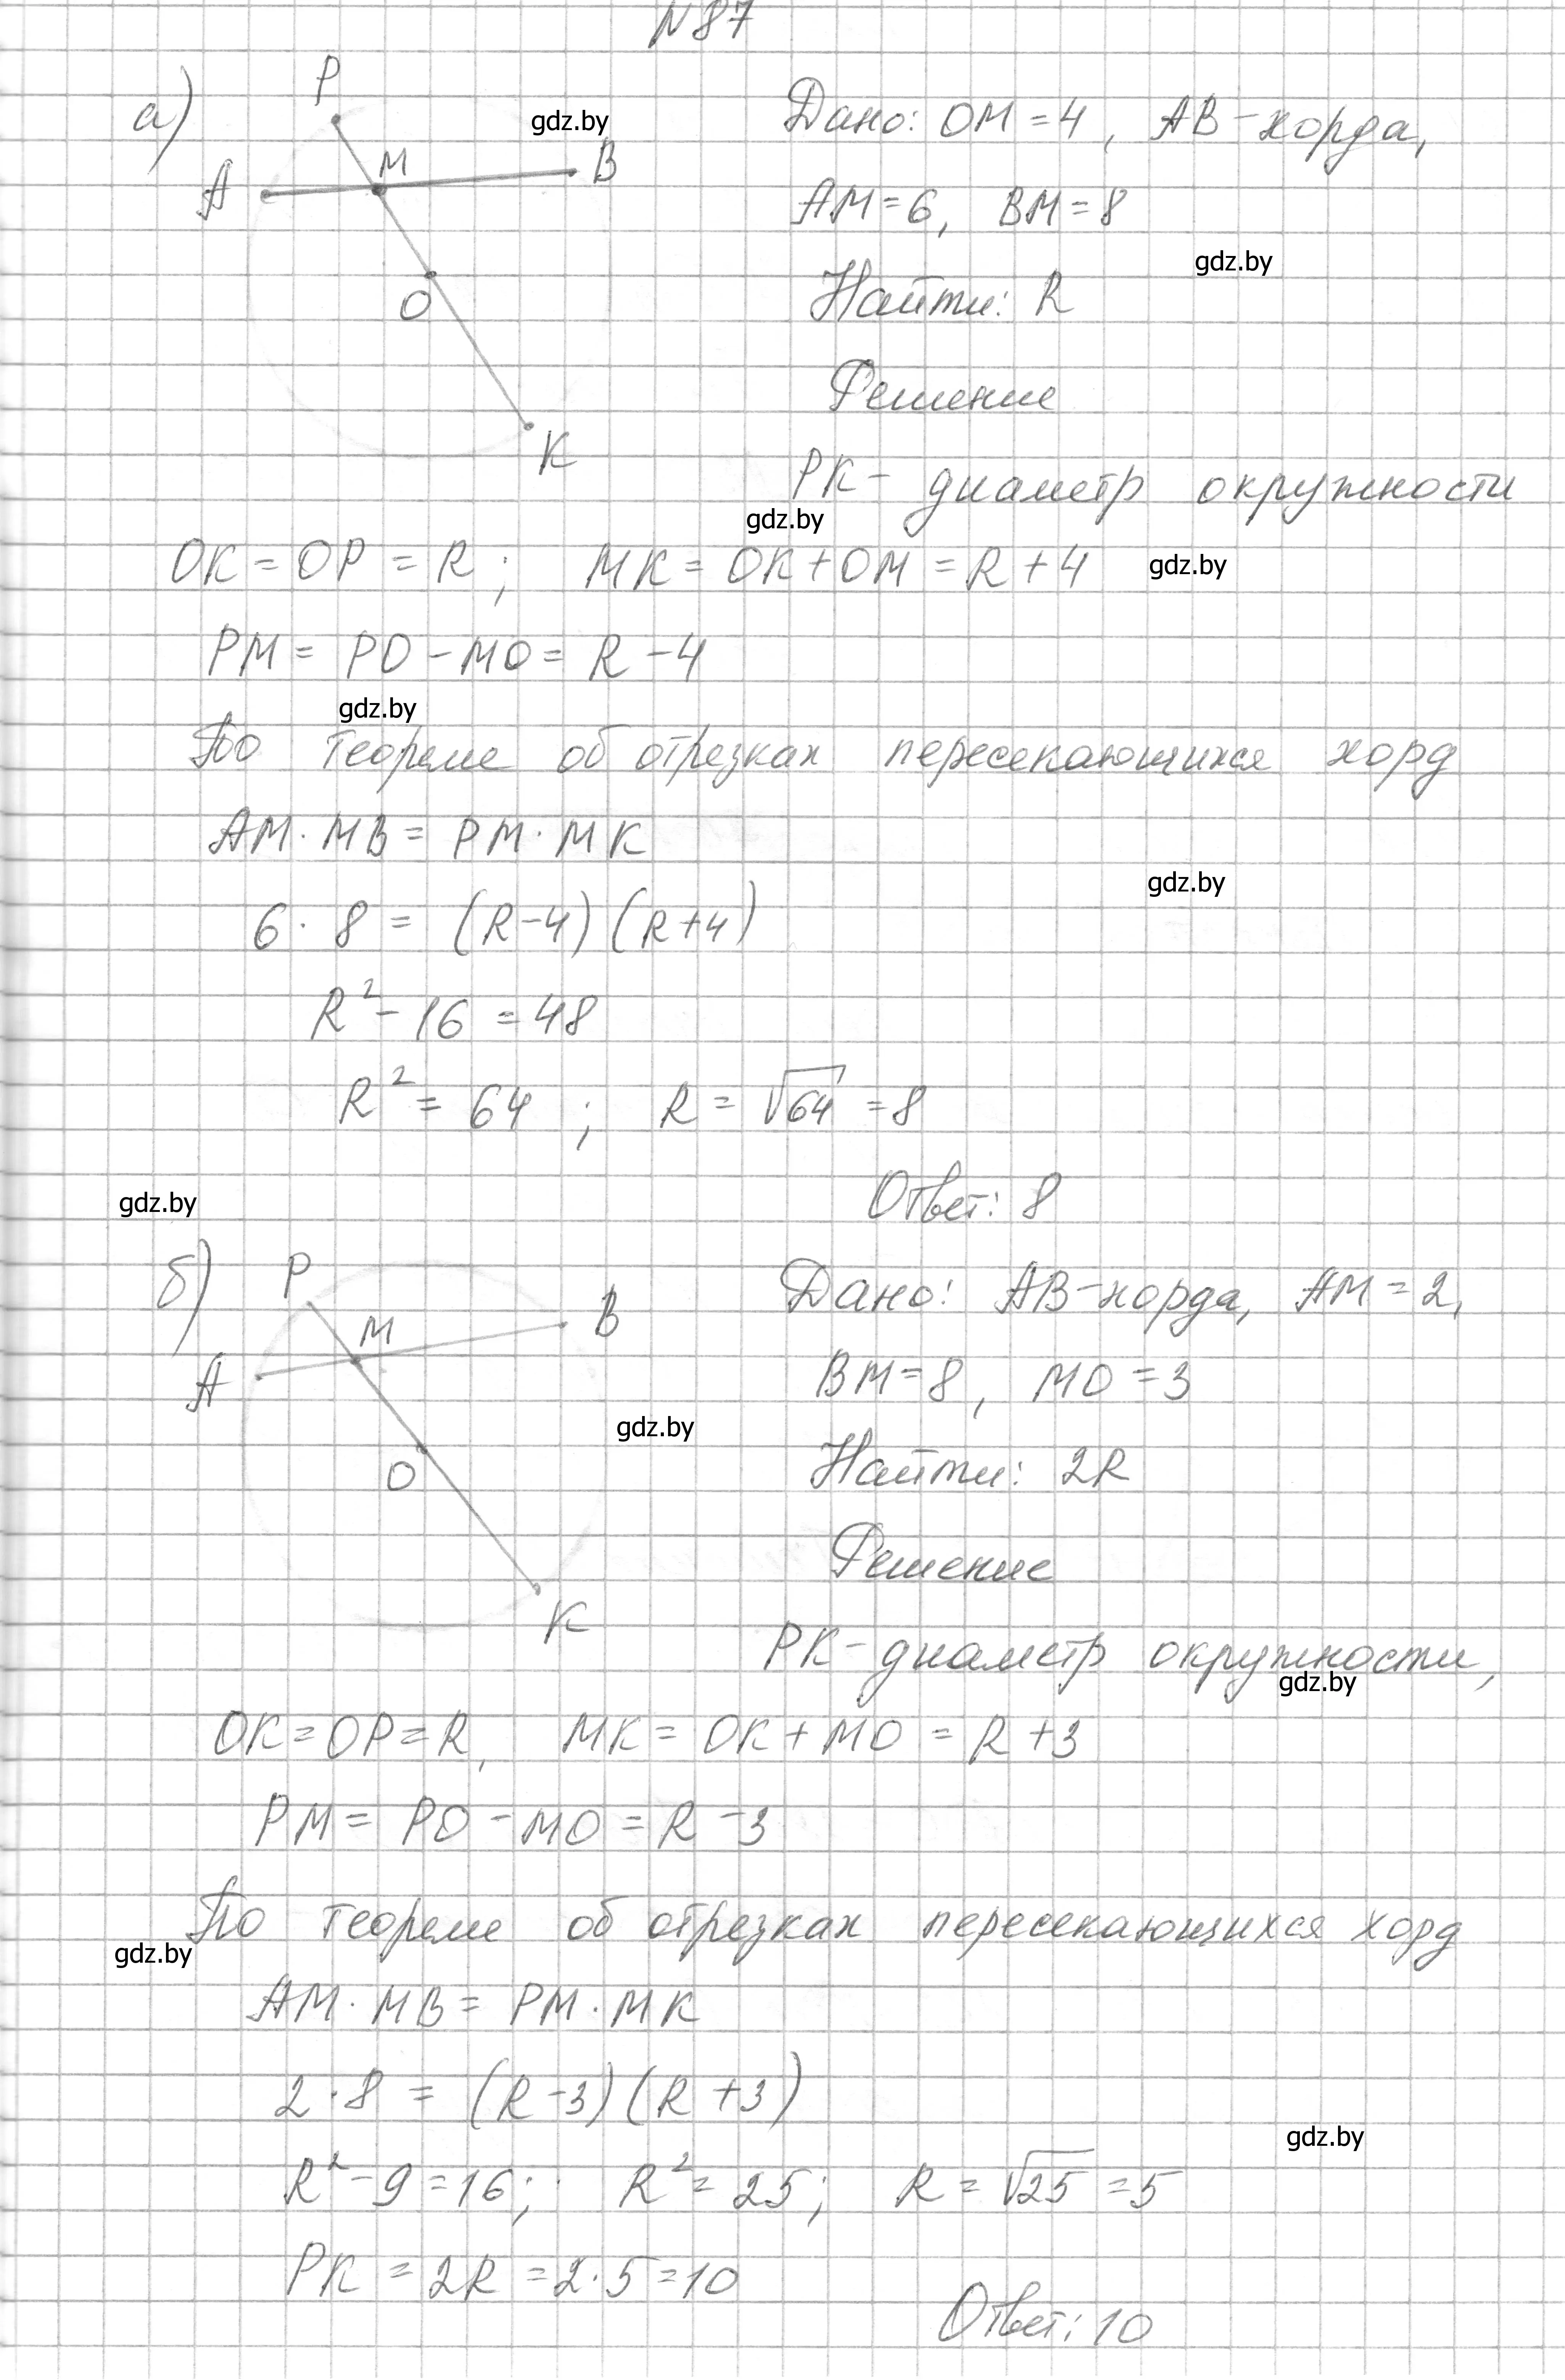 N87
а)
P
gdz.by
Дано: OM = 4, AB - хорда,
A
M
B
AM = 6, BM = 8
gdz.by
Найти: R
O
Решение
K
PK - диаметр окружности
gdz.by
OK = OP = R; MK = OK + OM = R + 4
gdz.by
PM = PO - MO = R - 4
gdz.by
По теореме об отрезках пересекающихся хорд
AM · MB = PM · MK
gdz.by
6 · 8 = (R-4)(R+4)
R² - 16 = 48
R² = 64 ; R = √64 = 8
gdz.by
Ответ: 8
б)
P
Дано: AB - хорда, AM = 2,
M
B
A
BM = 8, MO = 3
gdz.by
Найти: 2R
O
Решение
K
PK - диаметр окружности,
gdz.by
OK = OP = R, MK = OK + MO = R + 3
PM = PO - MO = R - 3
По теореме об отрезках пересекающихся хорд
gdz.by
AM · MB = PM · MK
2 · 8 = (R-3)(R+3)
gdz.by
R² - 9 = 16; R² = 25; R = √25 = 5
PK = 2R = 2 · 5 = 10
Ответ: 10